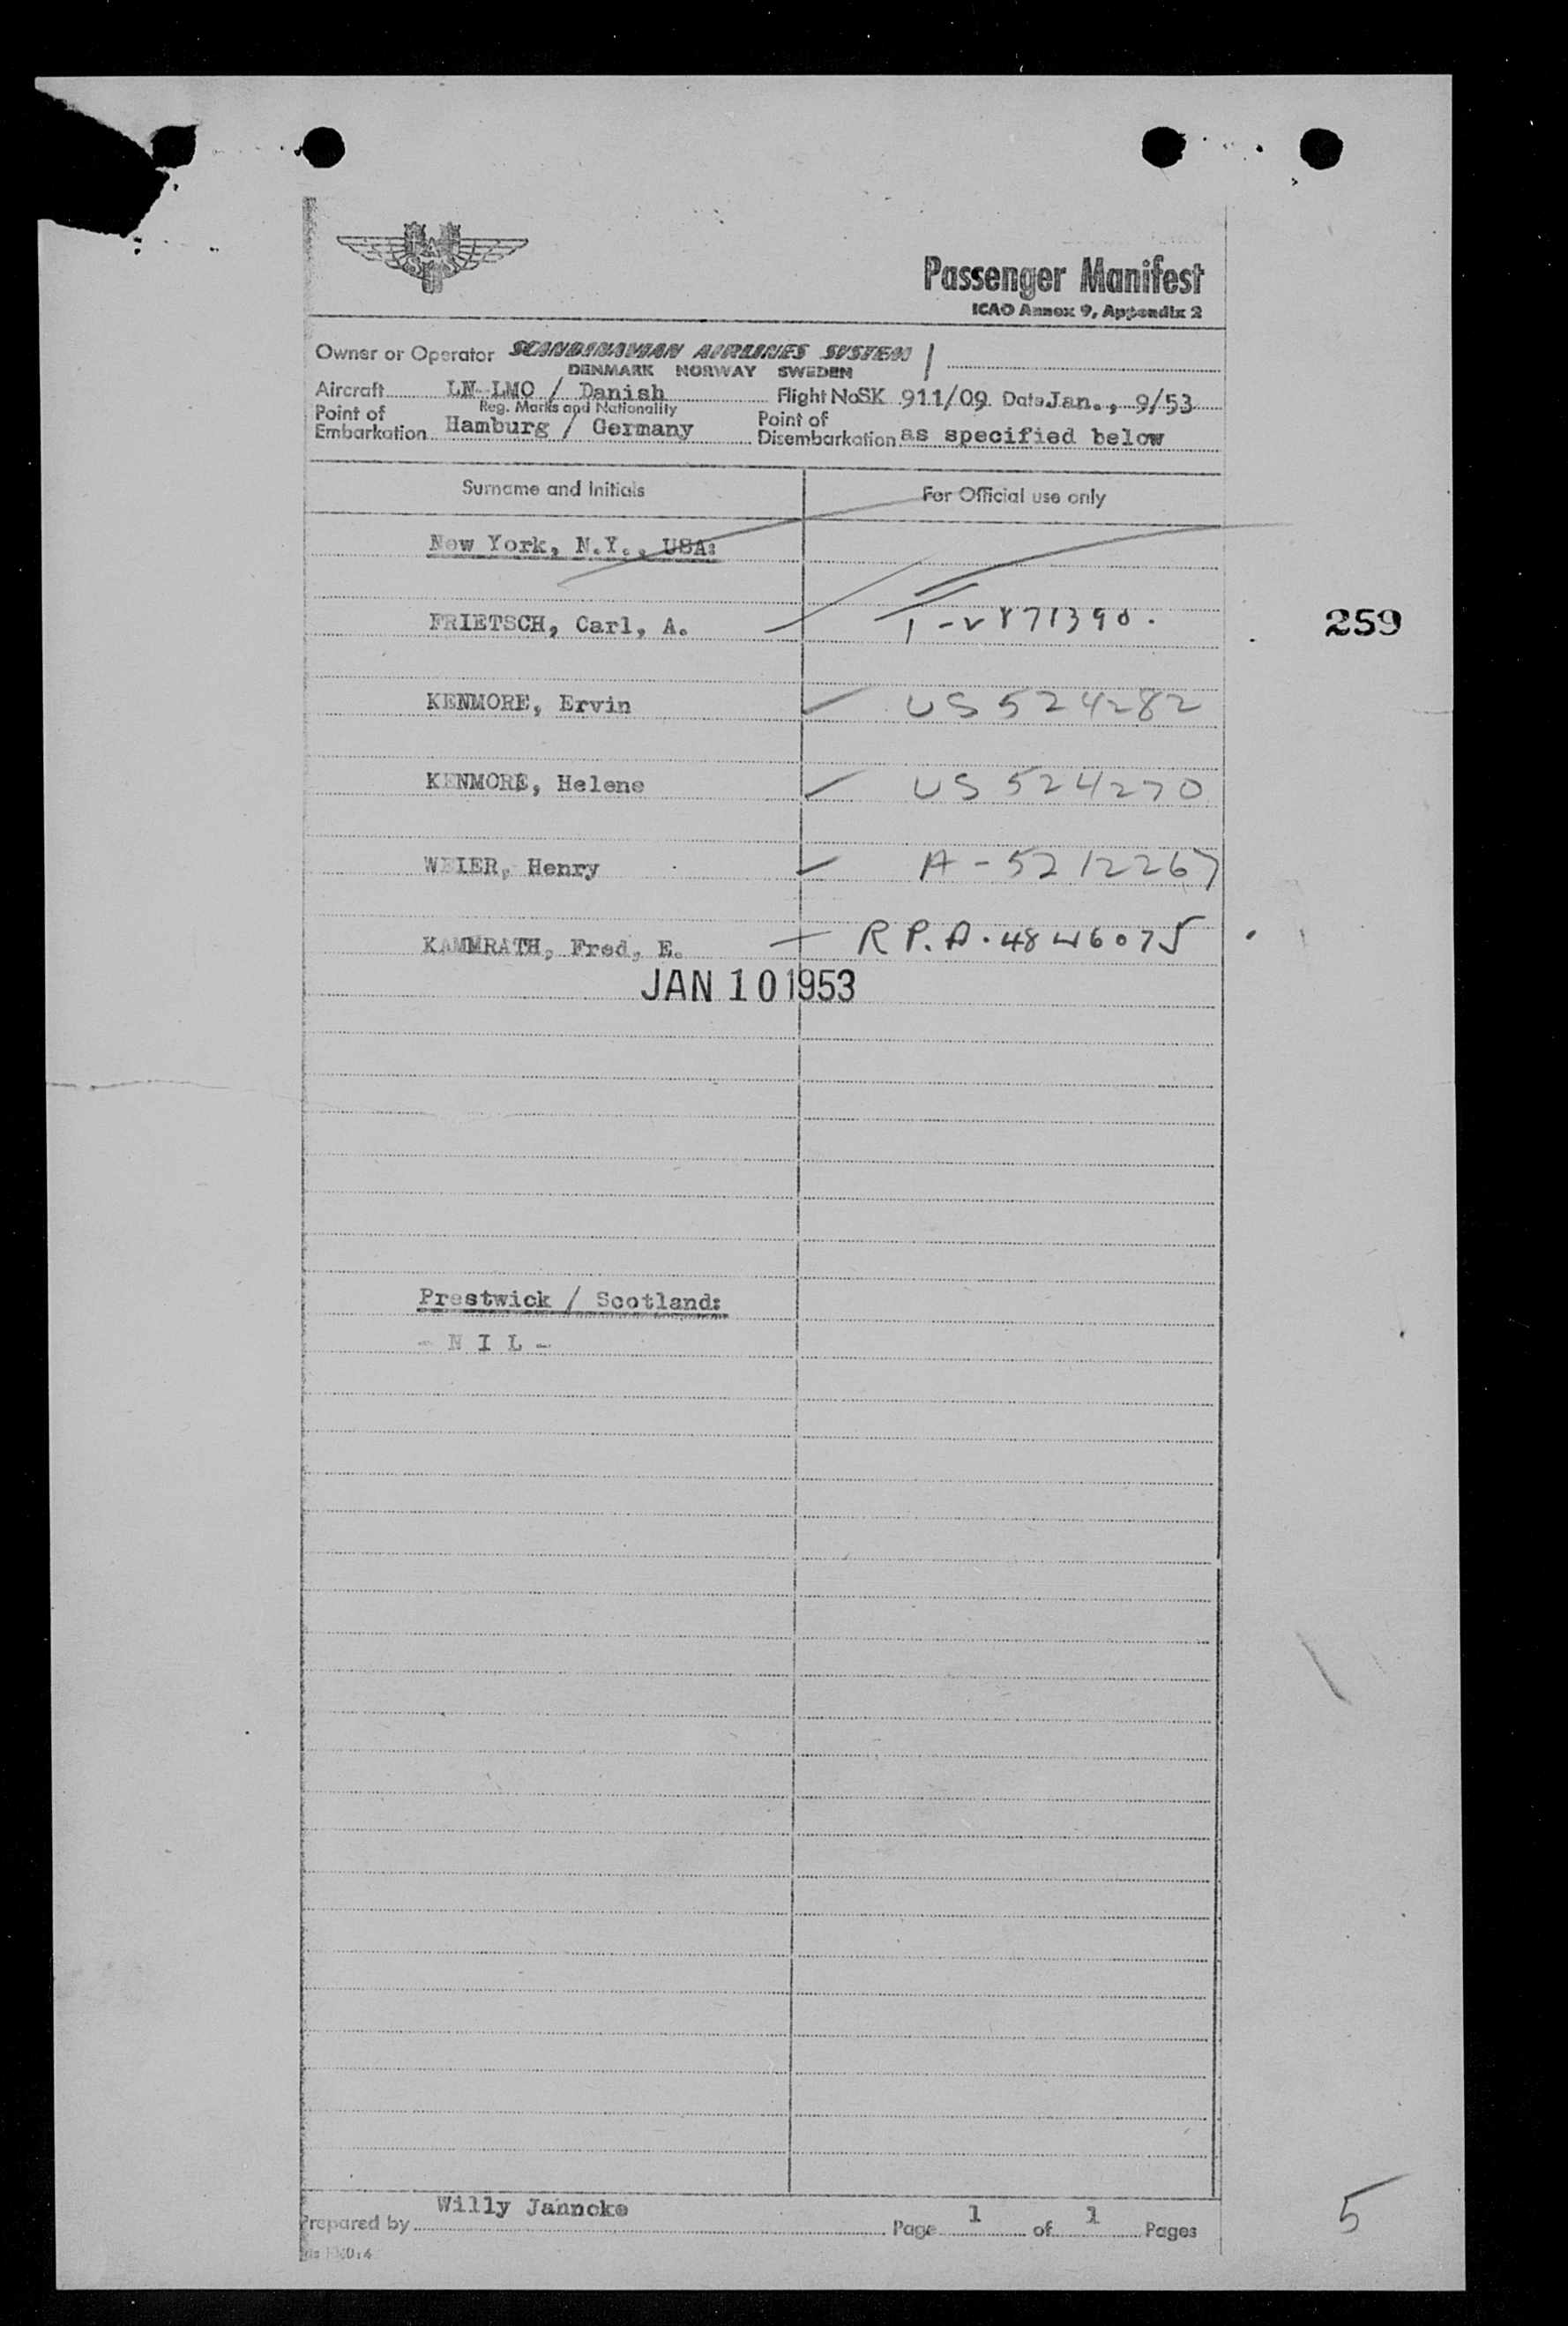 SAS
Passenger Manifest
ICAO Annex 9, Appendix 2
Owner or Operator SCANDINAVIAN AIRLINES SYSTEM
DENMARK NORWAY SWEDEN
Aircraft LN-LMO / Danish Flight No SK 911/09 Date Jan., 9/53
Reg. Marks and Nationality
Point of Embarkation Hamburg / Germany Point of Disembarkation as specified below
Surname and Initials For Official use only
New York, N.Y., USA:
FRIETSCH, Carl, A. 871390. 259
KENMORE, Ervin US 524282
KENMORE, Helene US 524270
WEIER, Henry A-5212267
KAMMRATH, Fred, E. R P.A. 4846075
JAN 10 1953
Prestwick / Scotland:
- N I L -
Willy Janncke
Prepared by Page 1 of 1 Pages
5